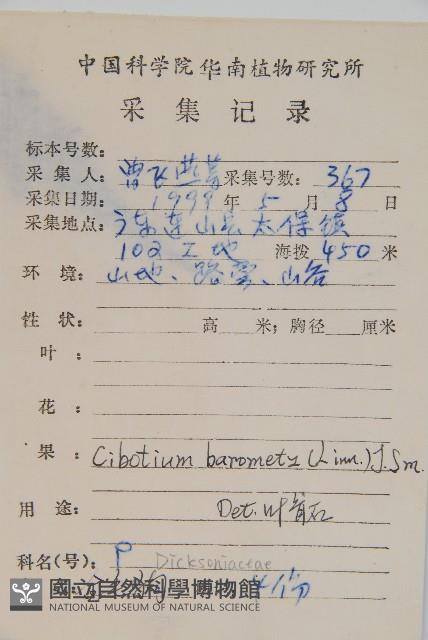 中国科学院华南植物研究所
采集记录
标本号数：
采集人：曾飞燕等 采集号数：367
采集日期：1999年5月8日
采集地点：广东连山县太保镇
102工地 海拨450米
环境：山地、路旁、山谷
性状： 高 米；胸径 厘米
叶：
花：
果：Cibotium barometz (Linn.) J. Sm.
用途： Det.
科名(号)：P Dicksoniaceae
國立自然科學博物館
NATIONAL MUSEUM OF NATURAL SCIENCE